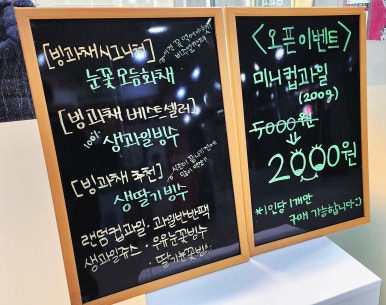 [빙과채시그니처]
눈꽃 오듬화채
[빙과채 베스트셀러]
100%
생과일빙수
[빙과채 추천]
생딸기빙수
랜덤컵과일 · 과일반반팩
생과일쥬스 · 우유눈꽃빙수
· 딸기눈꽃빙수
<오픈이벤트>
미니컵과일
(200g)
5000원
→ 2000원
※1인당 1개만
구매 가능합니다:)